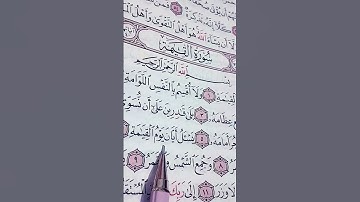 إِنَّهُ تَذْكِرَةٌ ٥٤ فَمَن
أَن يَشَاءَ اللَّهُ هُوَ أَهْلُ التَّقْوَى وَأَهْلُ
سُورَةُ الْقِيَامَةِ
بِسْمِ اللَّهِ الرَّحْمَٰنِ الرَّحِيمِ
الْقِيَٰمَةِ ١ وَلَا أُقْسِمُ بِالنَّفْسِ اللَّوَّامَةِ
عِظَامَهُ ٣ بَلَىٰ قَٰدِرِينَ عَلَىٰ أَن نُّسَوِّيَ
أَمَامَهُ ٥ يَسْـَٔلُ أَيَّانَ يَوْمُ الْقِيَٰمَةِ
٨ وَجُمِعَ الشَّمْسُ ٩
وَزَرَ ١١ إِلَىٰ رَبِّكَ